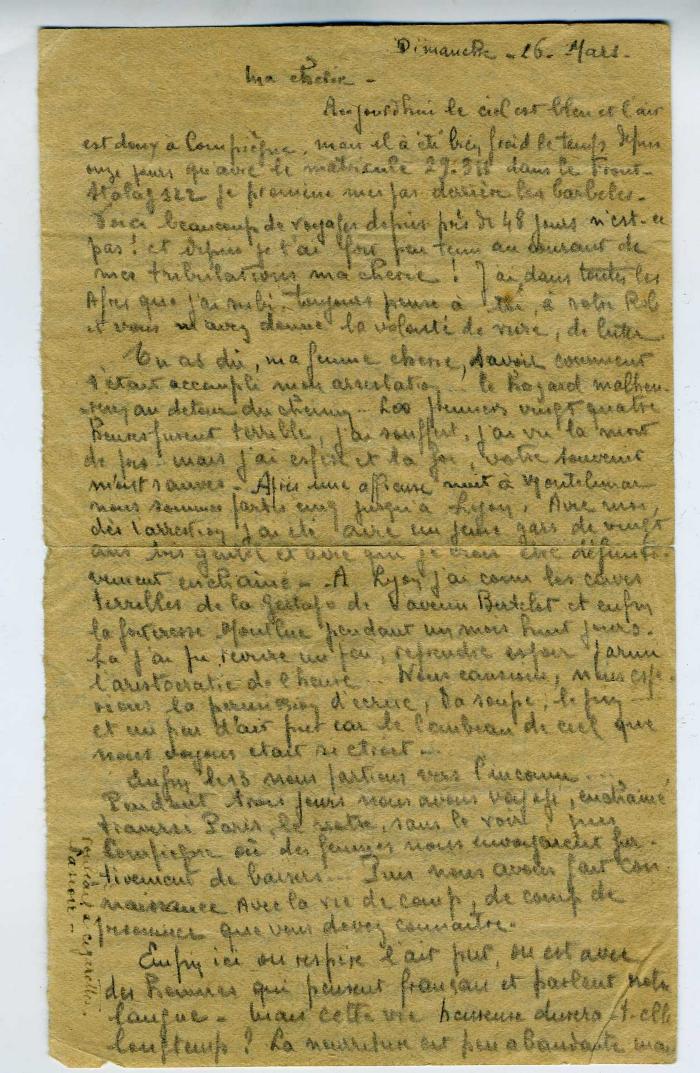 Dimanche - 26 - Mars -
Ma chérie -
Aujourdhui le ciel est bleu et l'air
est doux à Compiègne, mais il à été bien froid le temps depuis
onze jours qu'avec le matricule 29.3 dans le Front-
Stalag 122 je promène mes pas derrière les barbelés -
Voici beaucoup de voyages depuis près de 48 jours n'est-ce
pas! et depuis je t'ai fort peu tenu au courant de
mes tribulations ma chérie! J'ai dans toutes les
que j'ai subi toujours pensé à toi, à notre Rob
et vous m'avez donné la volonté de vivre, de lutter
Tu as dû, ma femme chérie, savoir comment
s'était accompli mon arrestation - le hazard malheu-
reux au détour du chemin - Les premiers vingt quatre
heures furent terrible, j'ai souffert, j'ai vu la mort
de près mais j'ai espéré et la foi, votre souvenir
m'ont sauvés - Après une affreuse nuit à Montélimar
nous sommes partis cinq jusqu'à Lyon. Avec moi,
dès l'arrestion j'ai été avec un jeune gars de vingt
ans très gentil et avec qui je crois être définiti-
vement enchaîné - À Lyon j'ai connu les caves
terribles de la Gestapo de l'avenue Bertelot et enfin
la forteresse Montluc pendant un mois huit jours.
Là j'ai pu revivre un peu, reprendre espoir parmi
l'aristocratie de l'heure... Nous causions, nous espé-
rions la permission d'écrire, la soupe, le
et un peu d'air pur car le lambeau de ciel que
nous voyons était si étroit -
Enfin le 13 nous partions vers l'inconnu ....
Pendant trois jours nous avons voyagé, enchaîné
traversé Paris, le notre, sans le voir puis
Compiègne où des femmes nous envoyaient fur-
tivement de baisers... Puis nous avons fait con
naissance avec la vie de camp, de camp de
prisonnier que vous devez connaître.
Enfin ici on respire l'air pur, on est avec
des hommes qui pensent français et parlent notre
langue - mais cette vie heureuse durera-t-elle
longtemps? La nourriture est peu abondante mais
cigarettes.